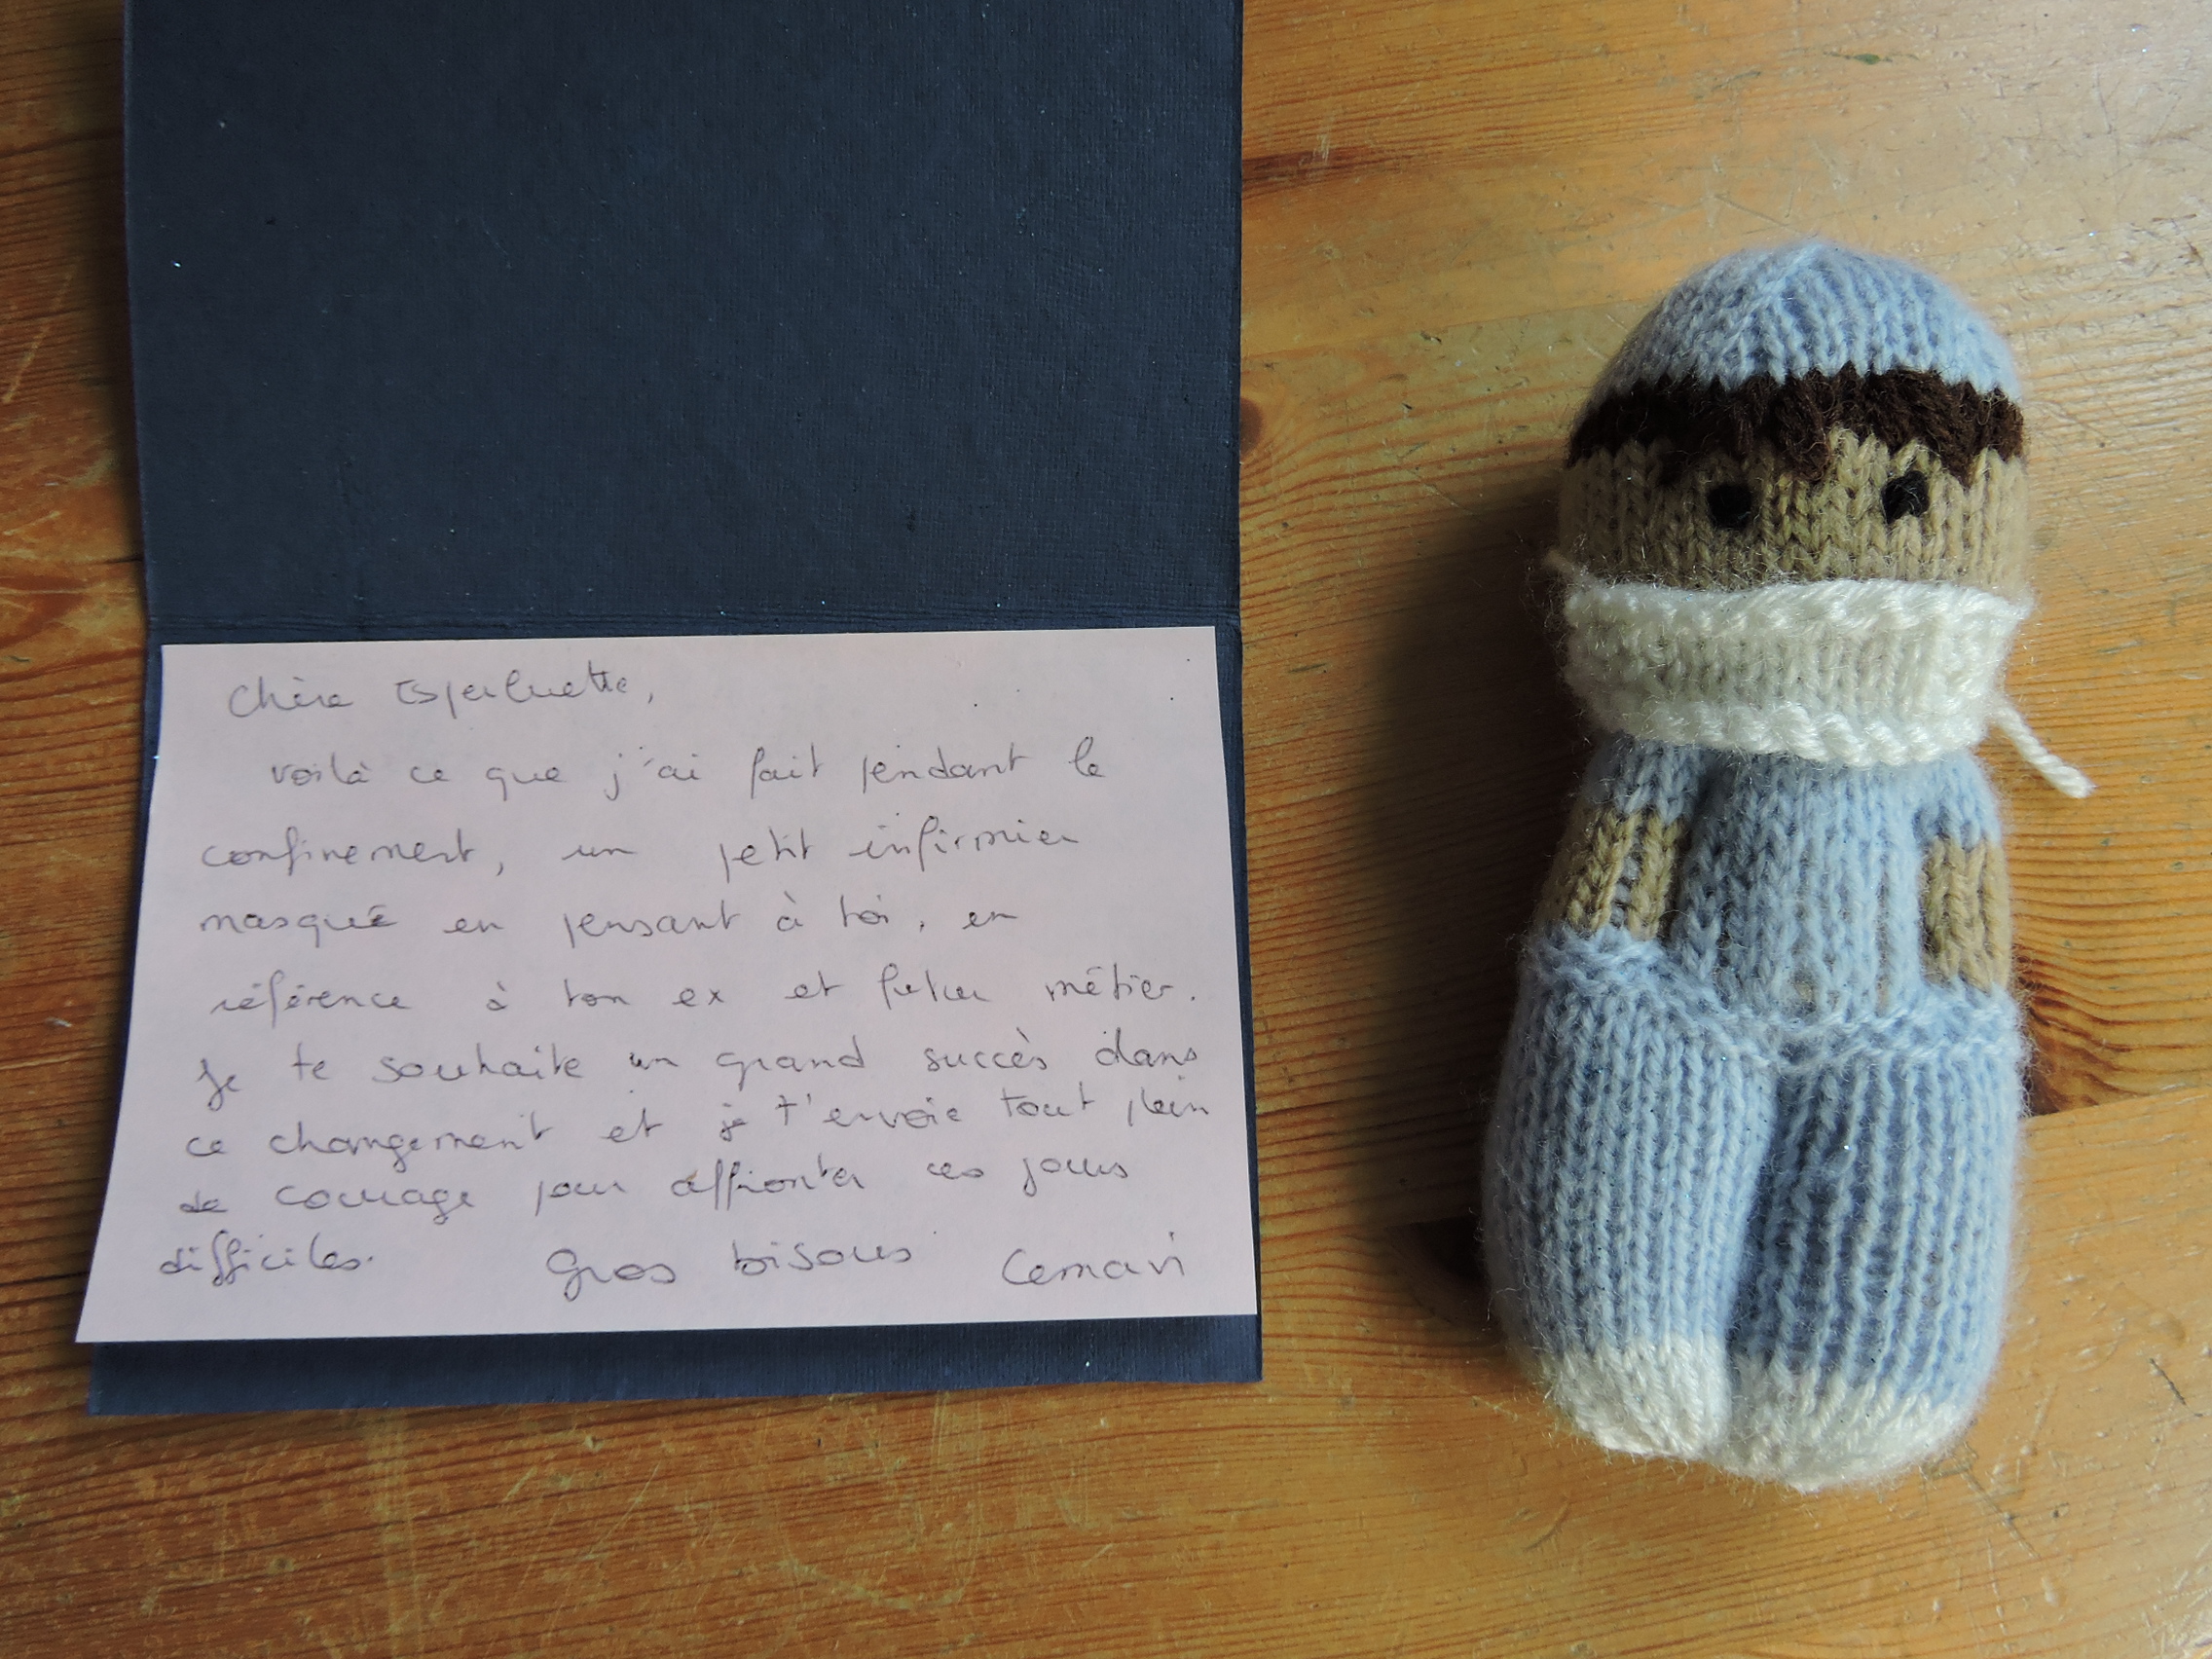 Chère Esperluette,
voilà ce que j'ai fait pendant le
confinement, un petit infirmier
masqué en pensant à toi, en
référence à ton ex et futur métier.
Je te souhaite un grand succès dans
ce changement et je t'envoie tout plein
de courage pour affronter ces jours
difficiles. Gros bisous Cemavi